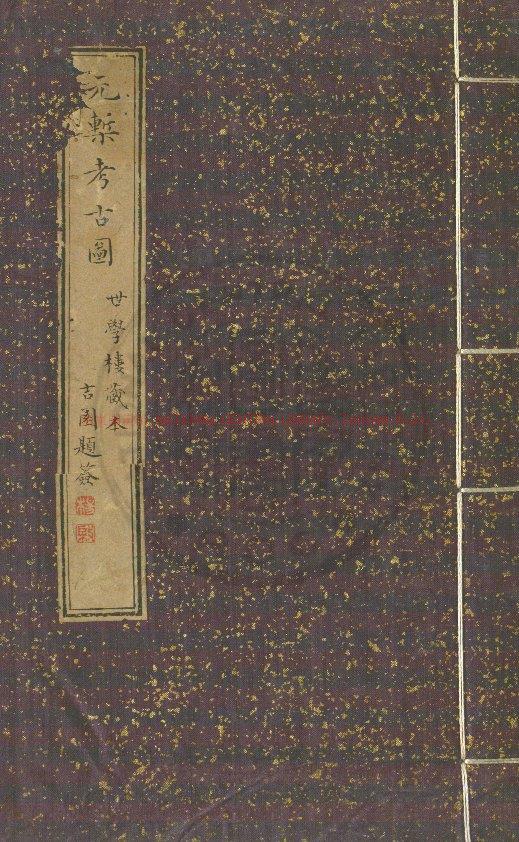 元槧考古圖
世學樓藏本
吉園題簽